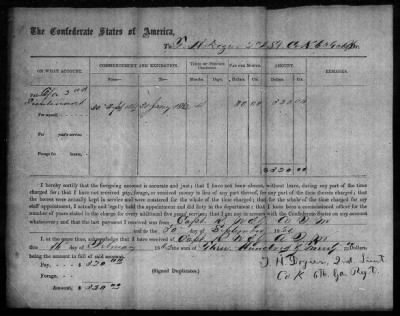 The Confederate States of America,
To T. H. 2d Lt Co K 6 Ga
ON WHAT ACCOUNT.
COMMENCEMENT AND EXPIRATION.
TERM OF SERVICE CHARGED.
PAY PER MONTH.
AMOUNT.
REMARKS.
From— To— Months Days. Dollars Cents. Dollars Cents.
2nd
Lieutenant 30 4 80 00 320 00
For myself,
For years' service
Forage for
$320.00
I hereby certify that the foregoing account is accurate and just; that I have not been absent, without leave, during any part of the time
charged for; that I have not received pay, forage, or received money in lieu of any part thereof, for any part of the time therein charged; that
the horses were actually kept in service and were mustered for the whole of the time charged; that for the whole of the time charged for my
staff appointment, I actually and legally held the appointment and did duty in the department; that I have been a commissioned officer for the
number of years stated in the charge for every additional five years' service; that I am not in arrears with the Confederate States on any account
whatsoever; and that the last payment I was received from Capt.
and to the 30 day of September 186
I, at the same time, acknowledge that I have received of Capt.
this 16 day of February 186 the sum of Three Hundred & Twenty Dollars
being the amount in full of said account.
Pay, - - - $ 320 00
Forage, - -
(Signed Duplicates.)
Amount, - $ 320 00
T. H. 2nd Lieut
Co K 6th Ga Regt.